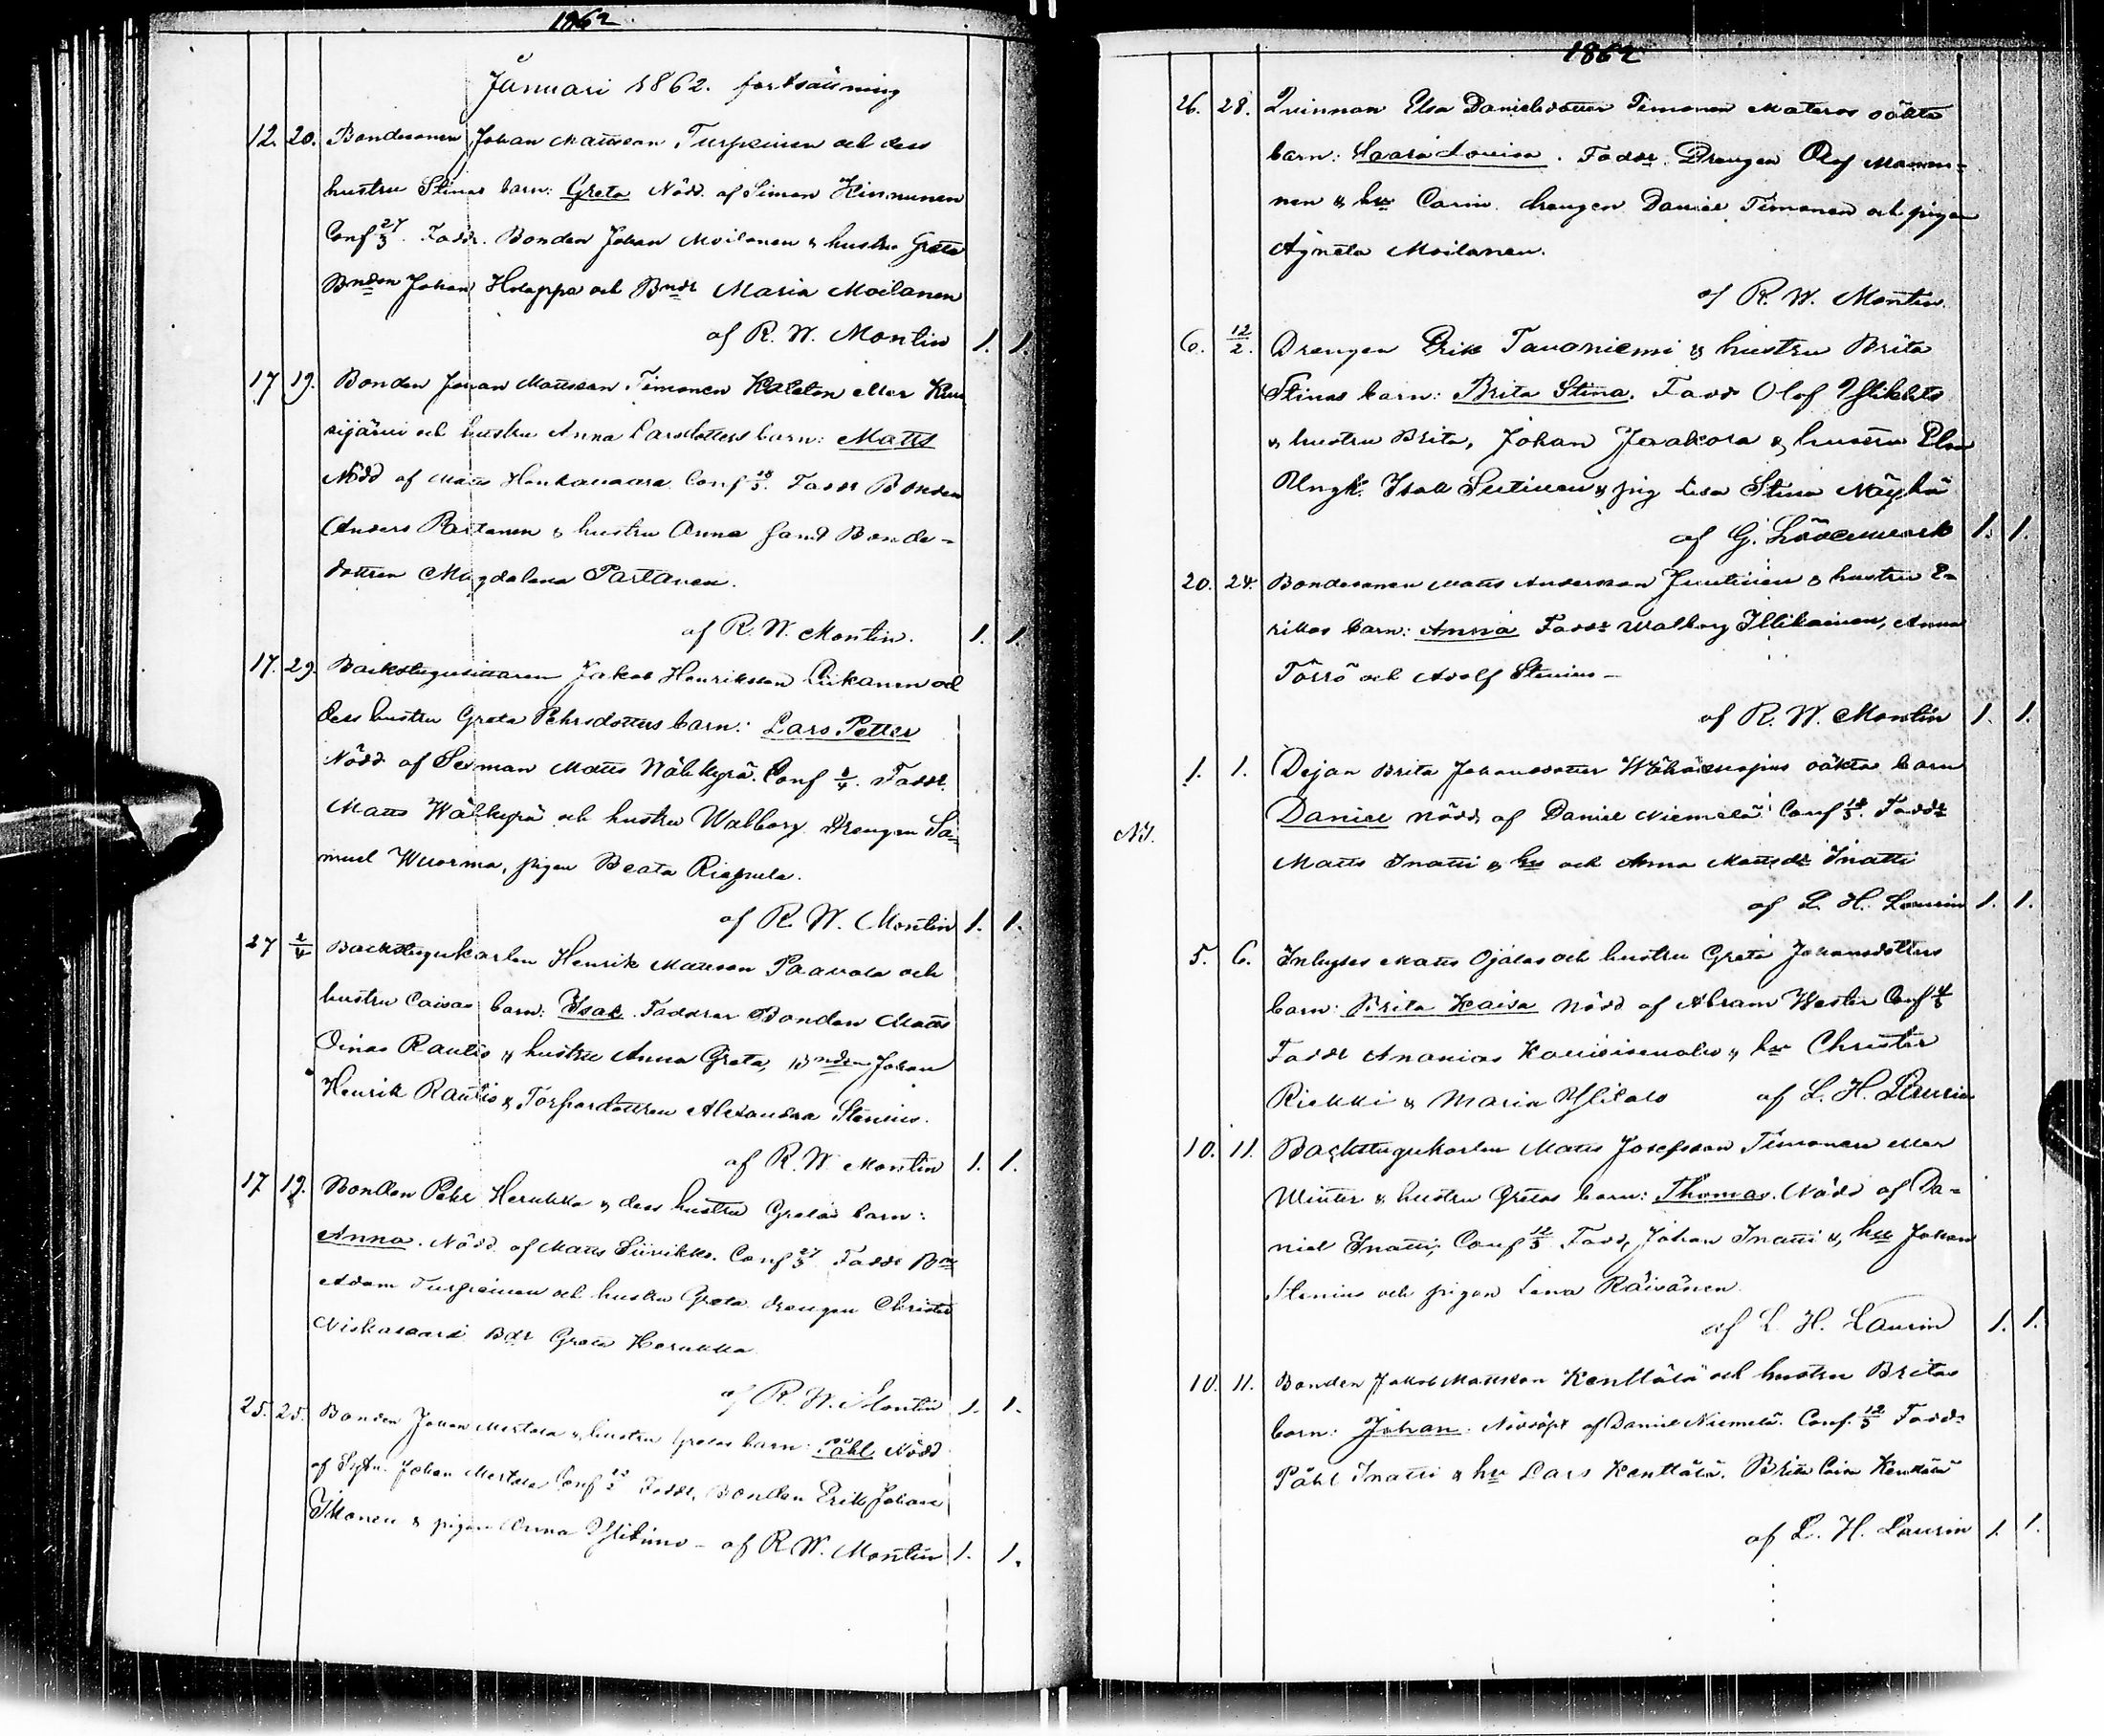 1862
Januari 1862. fortsättning
12. 20. Bondesonen Johan Mattsson Turpeinen och dess
hustru Stinas barn: Greta Nödd. af Simon Kinnunen
Conf 27/3. Faddr. Bonden Johan Moilanen & hustru Greta
Bnden Johan Holappa och Bndr Maria Moilanen
af R. W. Montin 1. 1.
17 19. Bonden Johan Mattsson Timonen eller
och hustru Anna Larsdotters barn: Matts
Nödd af Matts Honkavaara Conf 18/5. Faddr Bonden
Anders Partanen & hustru Anna samt Bonde-
dottren Magdalena Partanen.
af R. W. Montin. 1. 1.
17. 29. Backstugusittaren Jakob Henriksson Liikanen och
dess hustru Greta Pehrsdotters barn: Lars Petter
Nödd af Sexman Matts Wälkyrä. Conf 2/4. Faddr.
Matts Wälkyrä och hustru Walborg drengen Sa-
muel Wuorma, pigan Beata Riepula.
af R. W. Montin 1. 1.
27 2/4 Backstugukarlen Henrik Mattsson Paavola och
hustru Caisas barn: Isak. Faddrar Bonden Matts
Oinas Rautio & hustru Anna Greta, Bnden Johan
Henrik Rautio & Torpardottren Alexandra Stenius.
af R. W. Montin 1. 1.
17 19. Bonden Pehr Herukka & dess hustru Gretas barn:
Anna. Nödd. af Matts Siirikko. Conf 27/3 Faddr Bn
Adam Turpeinen och hustru Greta drengen Christer
Niskasaari Bdr Greta Herukka
af R. W. Montin 1. 1.
25. 25. Bonden Johan Mertala & hustru Gretas barn: Påhl Nödd
af Johan Mertala Conf Faddr. Bonden Erik Johan
Ikonen & pigan Anna Ylikimo - af R. W. Montin 1. 1.
1862
26. 28. Qvinnan Elsa Danielsdotter Timonen Materos oäkta
barn: Saara Lovisa. Faddr. Drengen Olof Manni-
nen & hu Carin drengen Daniel Timonen och pigan
Agneta Moilanen.
af R. W. Montin.
6. 12/2. Drengen Erik Tavaniemi & hustru Brita
Stinas barn: Brita Stina. Fadd Olof
& hustru Brita, Johan Jaakora & hustru Elsa
Ungk. Isak Sutinen & pig Lisa Stina Näykä
af G. 1. 1.
20. 24. Bondesonen Matts Andersson Juutinen & hustru E-
rikas barn: Anna Faddr Walborg Illikainen, Anna
Törrö och Adolf Stenius -
af R. W. Montin 1. 1.
1. 1. Dejan Brita Johansdotter oäkta barn
Daniel nödd af Daniel Niemelä Conf 18/5. Faddr
N3.
Matts Inatti & hu och Anna Mattsdr Inatti
af L. H. Laurin 1. 1.
5. 6. Inhyses Matts Ojalas och hustru Greta Johansdotters
barn: Brita Kaisa nödd af Abram Wester Conf 4/5
Faddr Ananias & hu Christer
Riekki & Maria Ylitalo af L. H. Laurin
10. 11. Backstugukarlen Matts Josefsson Timonen eller
Winter & hustru Gretas barn: Thomas. Nödd af Da-
niel Inatti, Conf 12/5 Fadd, Johan Inatti &, hu Johan
Stenius och pigan Lena Räisänen
af L. H. Laurin 1. 1.
10. 11. Bonden Jakob Mattsson Kenttälä och hustru Britas
barn: Johan. Nöddöpt af Daniel Niemelä. Conf. 12/5 Faddr
Påhl Inatti & hu Lars Kenttälä. Brita Caisa Kenttälä
af L. H. Laurin 1. 1.